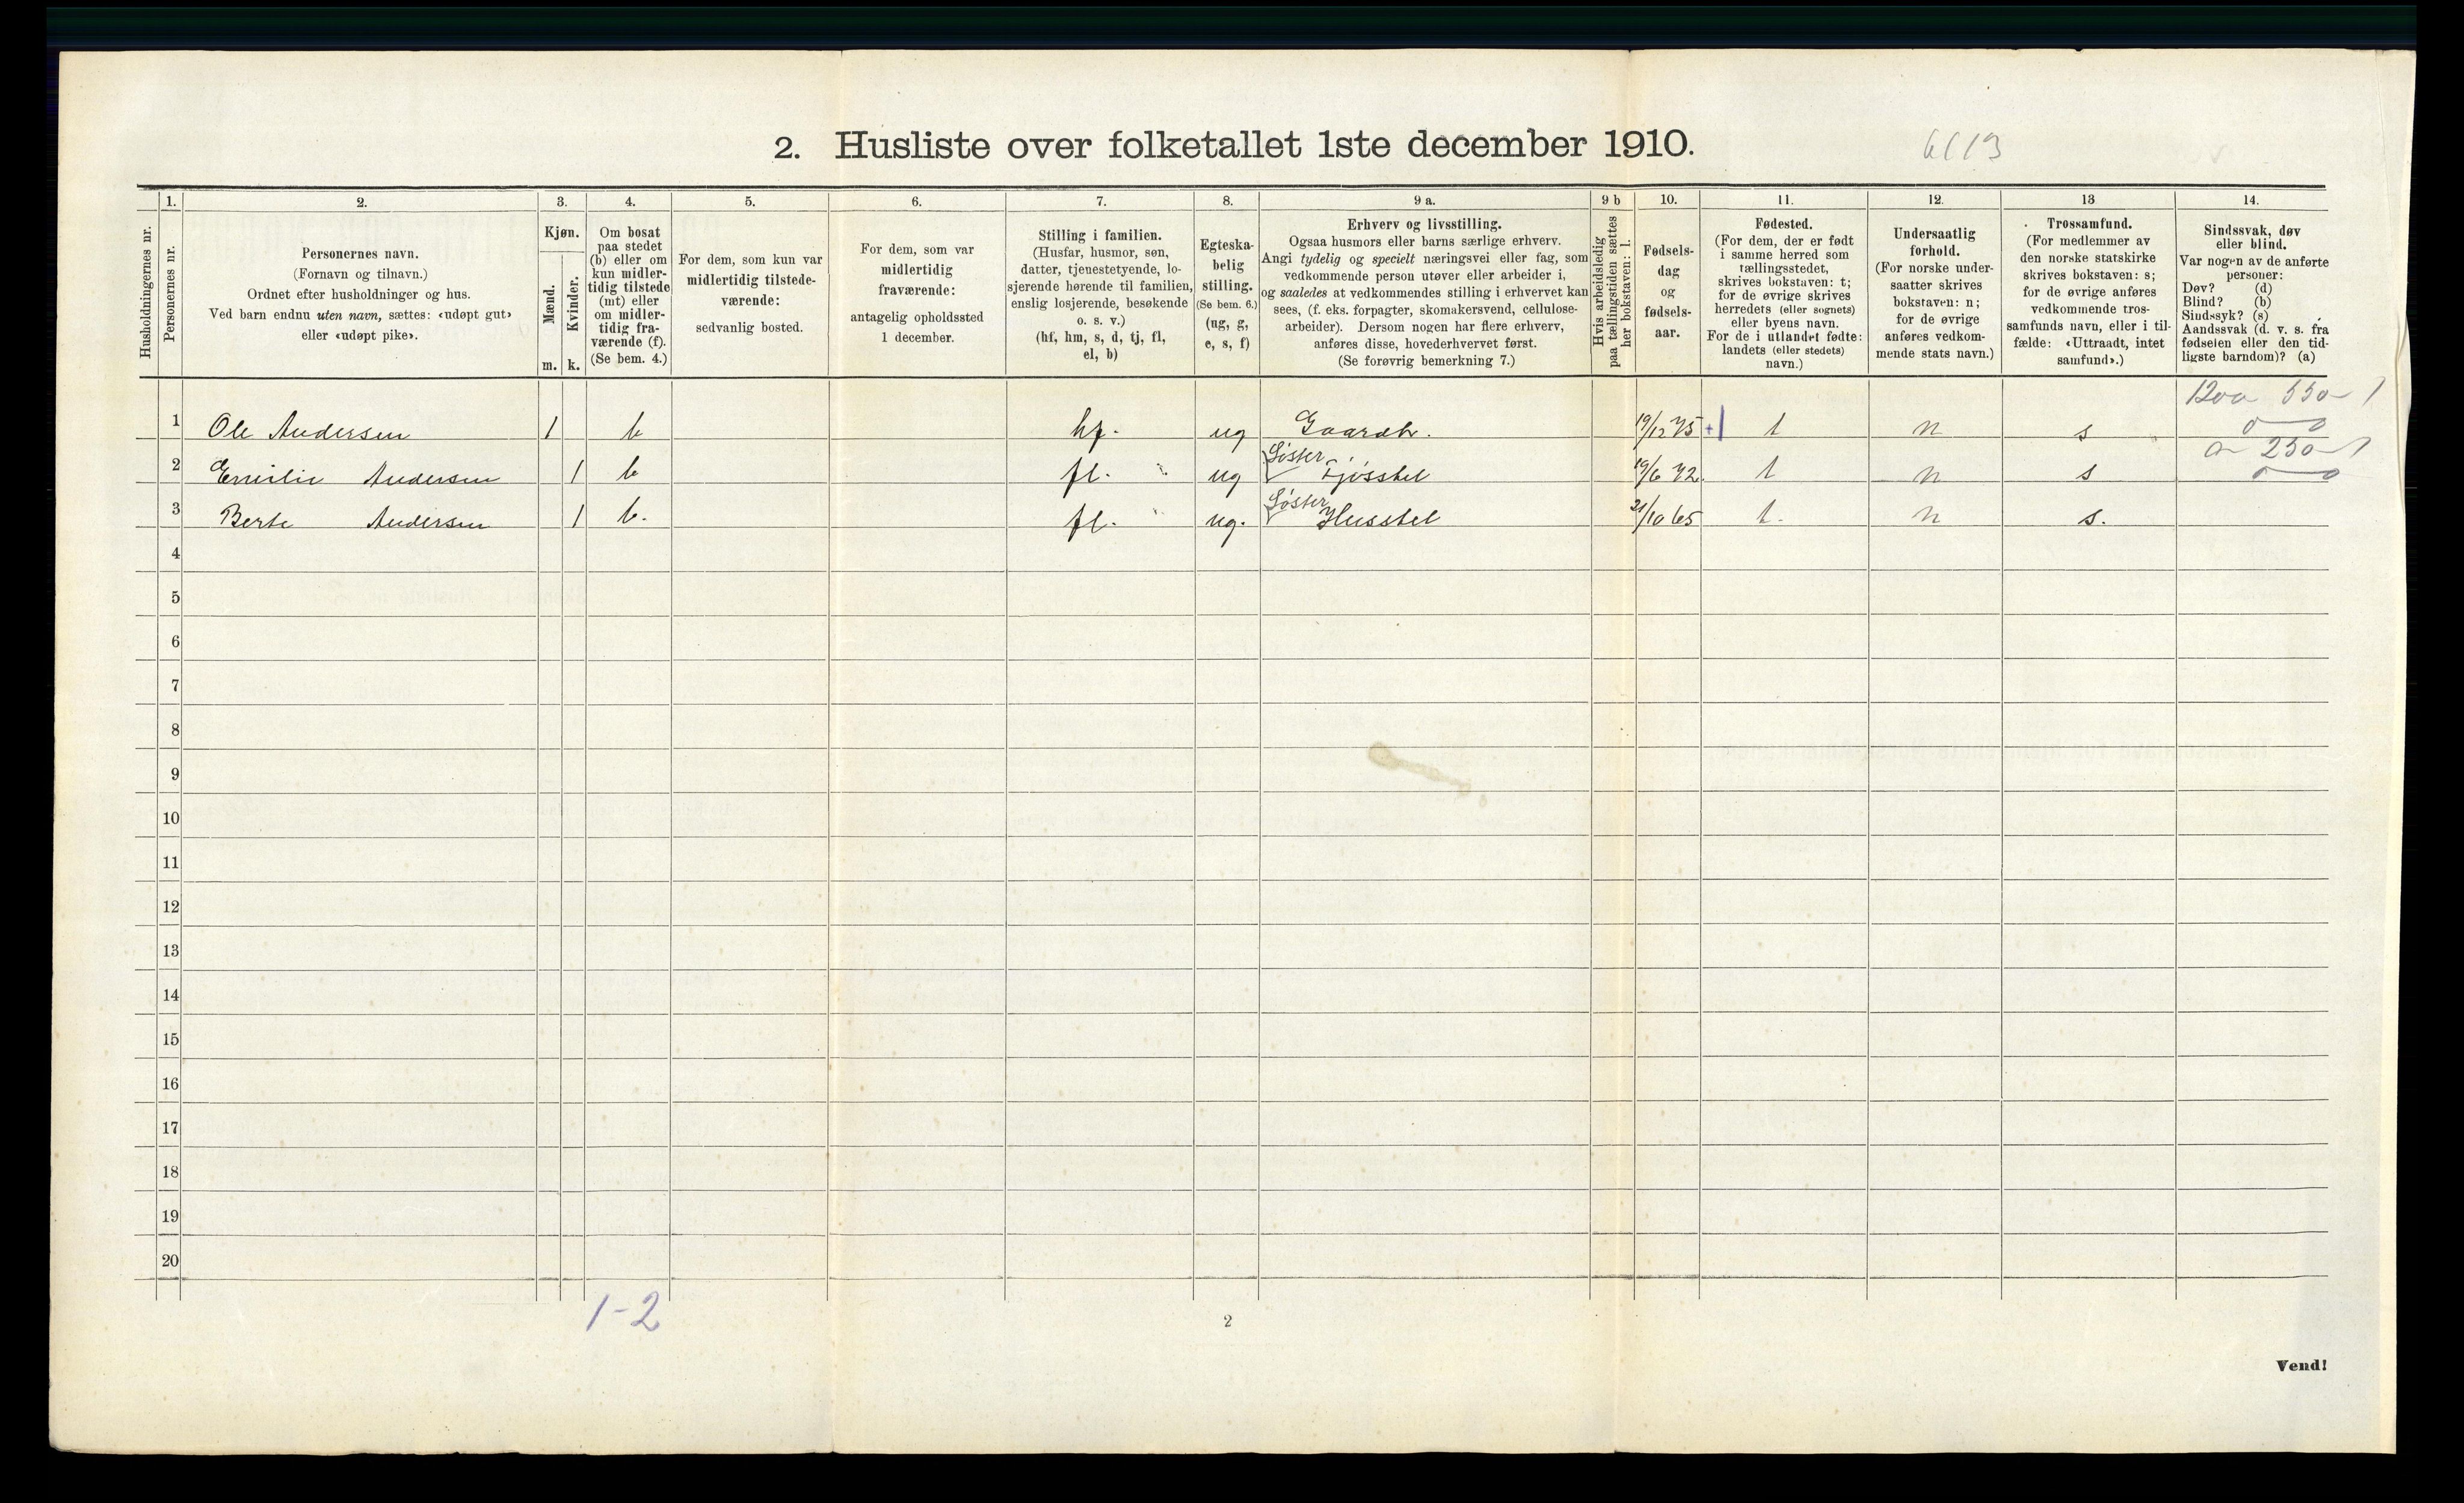 2. Husliste over folketallet 1ste december 1910.
6113
Husholdningernes nr.
1.
Personernes nr.
2.
Personernes navn.
(Fornavn og tilnavn.)
Ordnet efter husholdninger og hus.
Ved barn endnu uten navn, sættes: «udøpt gut»
eller «udøpt pike».
3.
Kjøn.
Mænd.
Kvinder.
m. k.
4.
Om bosat
paa stedet
(b) eller om
kun midler-
tidig tilstede
(mt) eller
om midler-
tidig fra-
værende (f).
(Se bem. 4.)
5.
For dem, som kun var
midlertidig tilstede-
værende:
sedvanlig bosted.
6.
For dem, som var
midlertidig
fraværende:
antagelig opholdssted
1 december.
7.
Stilling i familien.
(Husfar, husmor, søn,
datter, tjenestetyende, lo-
sjerende hørende til familien,
enslig losjerende, besøkende
o. s. v.)
(hf, hm, s, d, tj, fl,
el, b)
8.
Egteska-
belig
stilling.
(Se bem. 6.)
(ug, g,
e, s, f)
9 a.
Erhverv og livsstilling.
Ogsaa husmors eller barns særlige erhverv.
Angi tydelig og specielt næringsvei eller fag, som
vedkommende person utøver eller arbeider i,
og saaledes at vedkommendes stilling i erhvervet kan
sees, (f. eks. forpagter, skomakersvend, cellulose-
arbeider). Dersom nogen har flere erhverv,
anføres disse, hovederhvervet først.
(Se forøvrig bemerkning 7.)
9 b
Hvis arbeidsledig
paa tællingstiden sættes
her bokstaven: l.
10.
Fødsels-
dag
og
fødsels-
aar.
11.
Fødested.
(For dem, der er født
i samme herred som
tællingsstedet,
skrives bokstaven: t;
for de øvrige skrives
herredets (eller sognets)
eller byens navn.
For de i utlandet fødte:
landets (eller stedets)
navn.)
12.
Undersaatlig
forhold.
(For norske under-
saatter skrives
bokstaven: n;
for de øvrige
anføres vedkom-
mende stats navn.)
13
Trossamfund.
(For medlemmer av
den norske statskirke
skrives bokstaven: s;
for de øvrige anføres
vedkommende tros-
samfunds navn, eller i til-
fælde: «Uttraadt, intet
samfund».)
14.
Sindssvak, døv
eller blind.
Var nogen av de anførte
personer:
Døv? (d)
Blind? (b)
Sindssyk? (s)
Aandssvak (d. v. s. fra
fødselen eller den tid-
ligste barndom)? (a)
1200 550 - 1
1 Ole Andersen 1 b hf. ug Gaardbr. 19/12 75 +1 t n s 0 0
250 - 1
2 Emilie Andersen 1 b fl. ug Søster Fjøsstel 19/6 72. t n s 0 0
3 Berte Andersen 1 b. fl. ug. Søster Husstel 21/10 65 t. n s.
4
5
6
7
8
9
10
11
12
13
14
15
16
17
18
19
20
1-2
2
Vend!